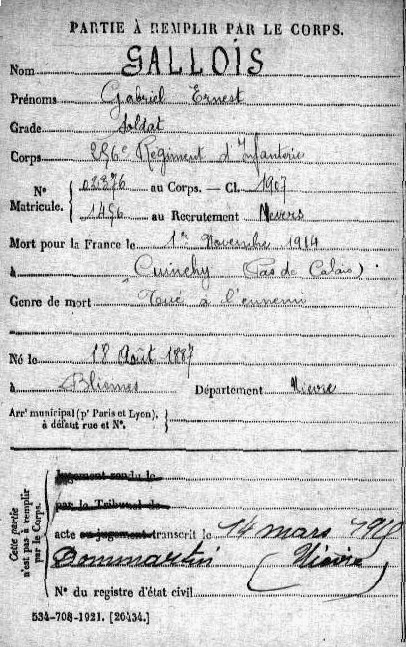 PARTIE À REMPLIR PAR LE CORPS.
Nom GALLOIS
Prénoms Gabriel Ernest
Grade Soldat
Corps 256e Régiment d'Infanterie
No Matricule. 03376 au Corps. — Cl. 1907
1456 au Recrutement Nevers
Mort pour la France le 1er Novembre 1914
à Cuinchy (Pas de Calais)
Genre de mort Tué à l'ennemi
Né le 18 Août 1887
à Blismes Département Nièvre
Arrt municipal (pr Paris et Lyon), à défaut rue et No.
Cette partie n'est pas à remplir par le Corps.
Jugement rendu le
par le Tribunal de
acte ou jugement transcrit le 14 mars
Dommartin (Nièvre)
No du registre d'état civil
534-708-1921. [26434.]